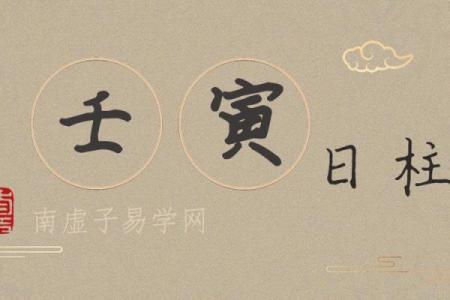 壬寅日柱
南虚子易学网